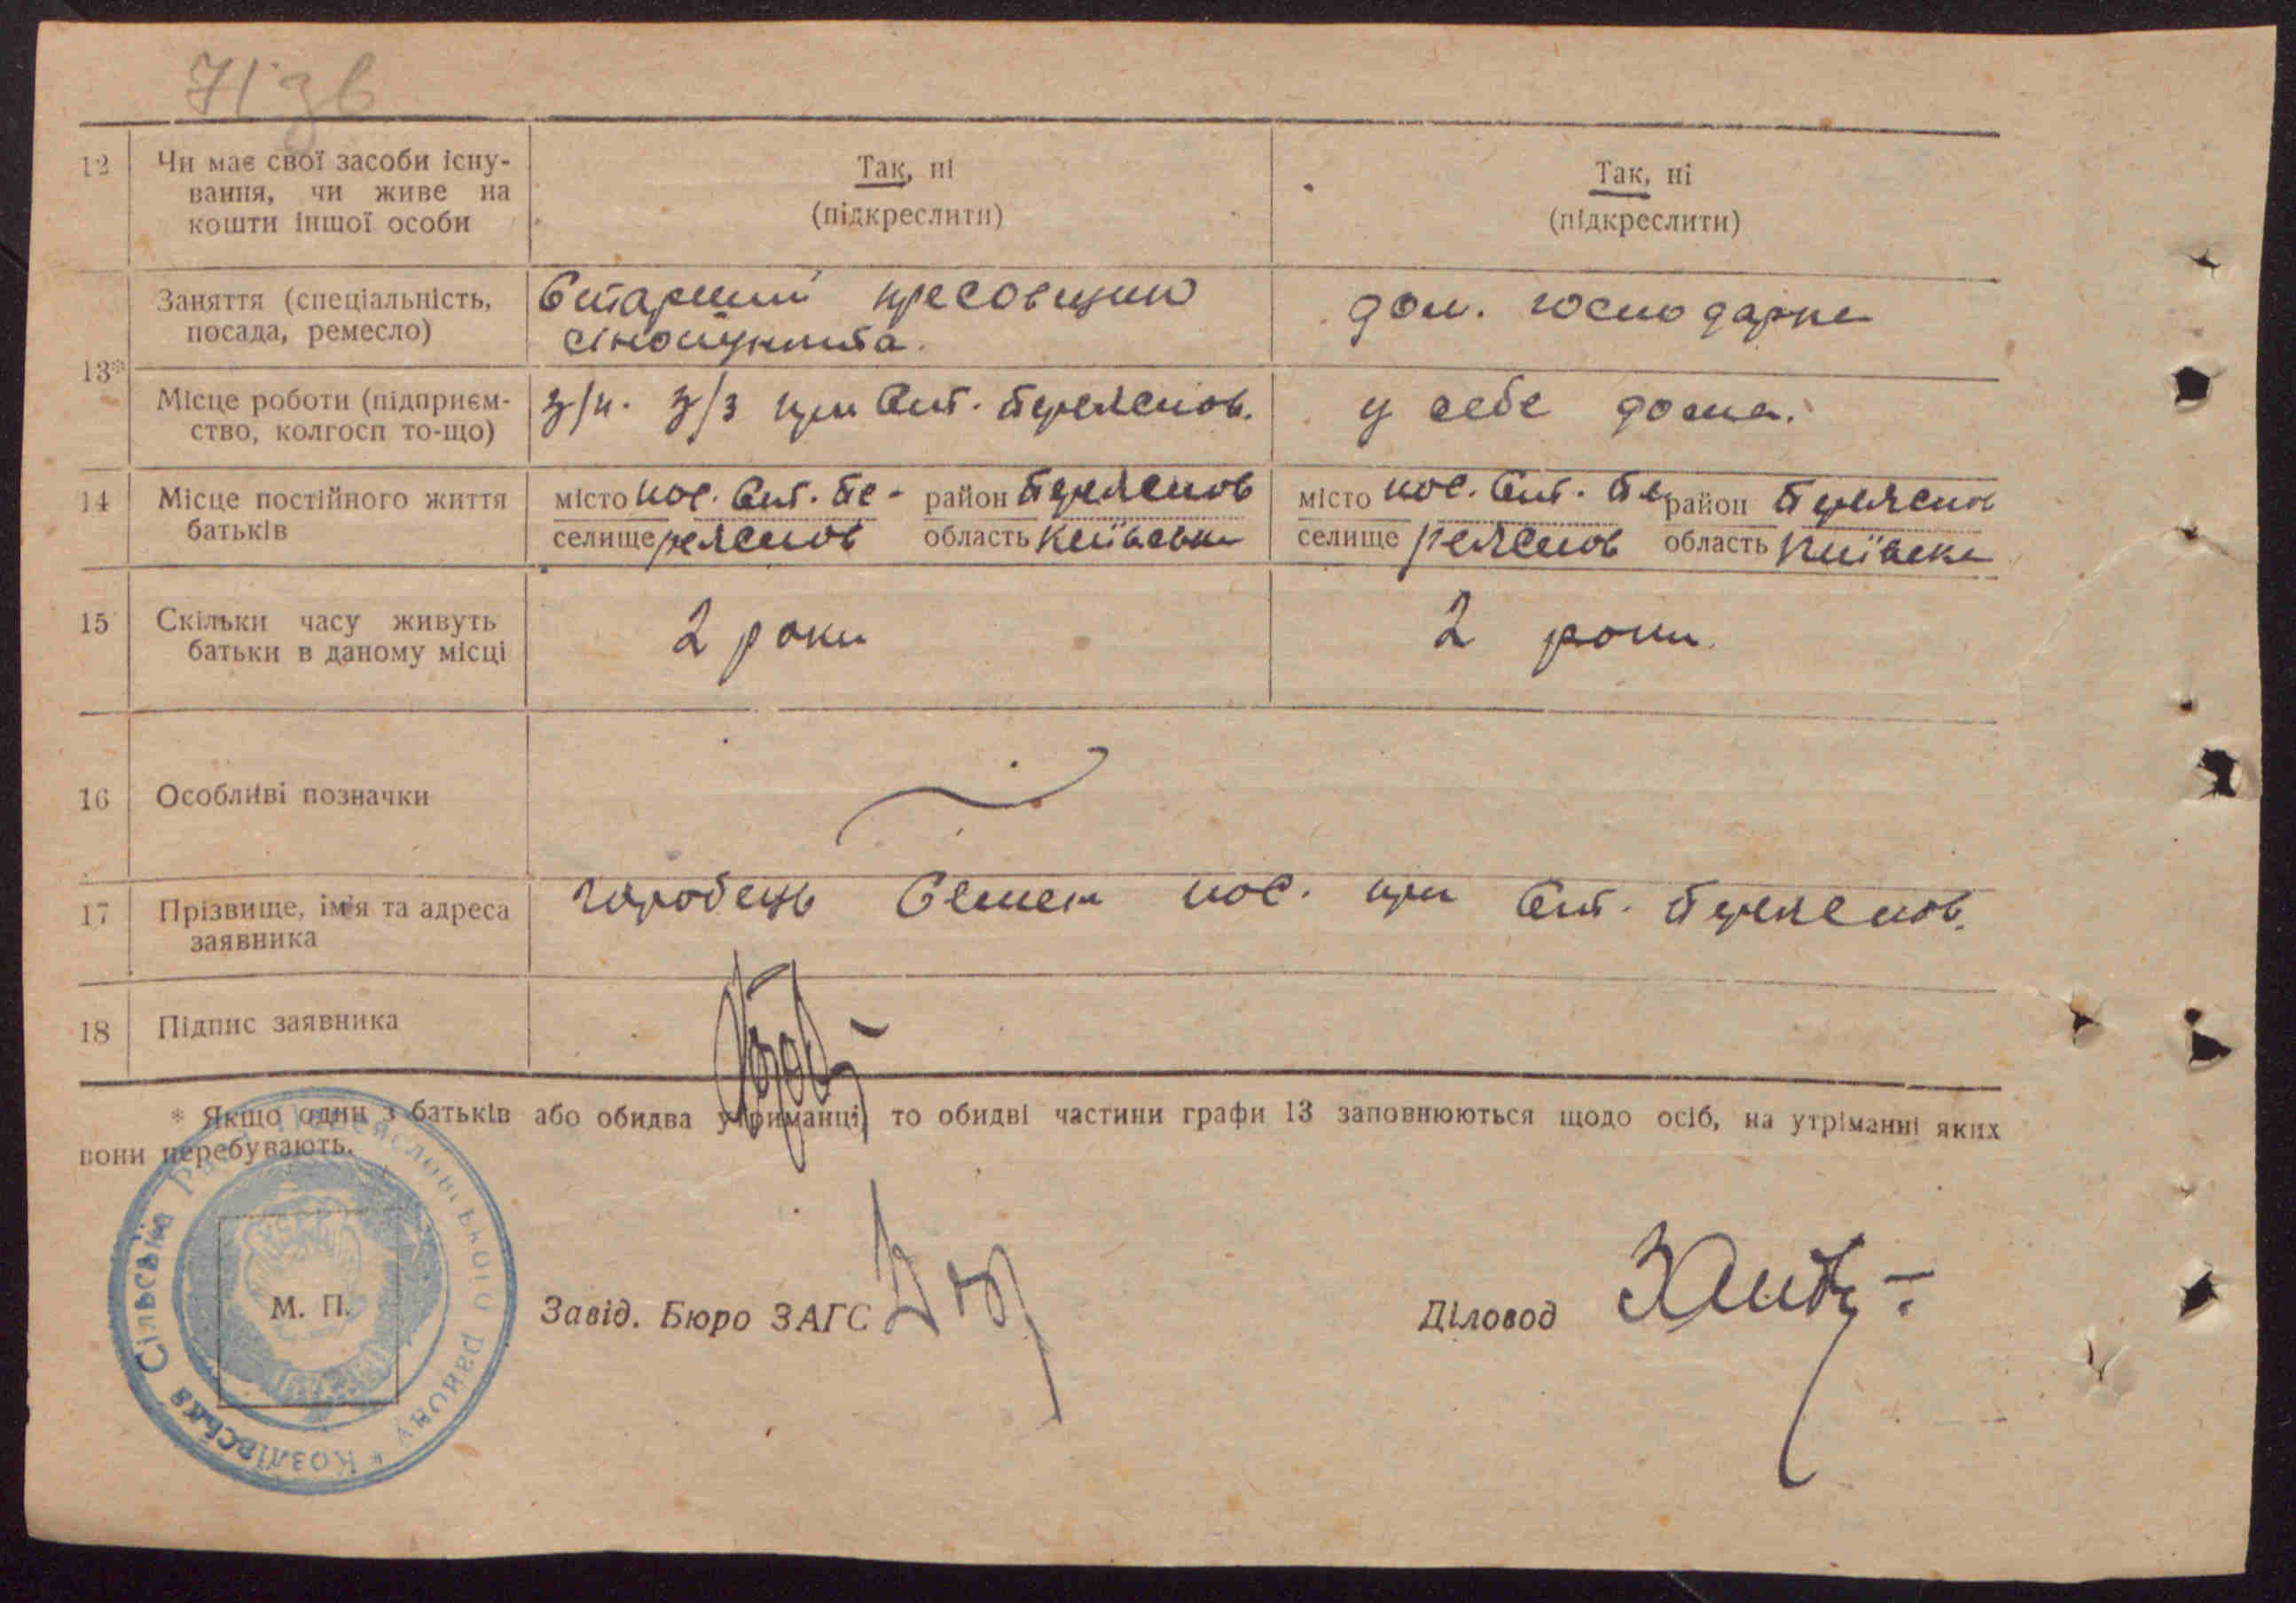 71 зв
12 Чи має свої засоби існу-
вання, чи живе на
кошти іншої особи
Так, ні
(підкреслити)
Так, ні
(підкреслити)
13*
Заняття (спеціальність,
посада, ремесло)
Старший пресовщик
сінопункта.
дом. господарка
Місце роботи (підприєм-
ство, колгосп то-що)
з/п. з/з при Ст. Переяслов.
у себе дома.
14 Місце постійного життя
батьків
місто пос. Ст. Пе- район Переяслов
селище реяслов область Київська
місто пос. Ст. Пе район Переяслов
селище реяслов область Київська
15 Скільки часу живуть
батьки в даному місці
2 роки
2 роки
16 Особливі позначки
17 Прізвище, ім'я та адреса
заявника
Горобець Семен пос. при Ст. Переяслов.
18 Підпис заявника
* Якщо один з батьків або обидва утриманці, то обидві частини графи 13 заповнюються щодо осіб, на утріманні яких
вони перебувають.
Козлівська Сільська Рада Переяславського району *
М. П.
Завід. Бюро ЗАГС
Діловод